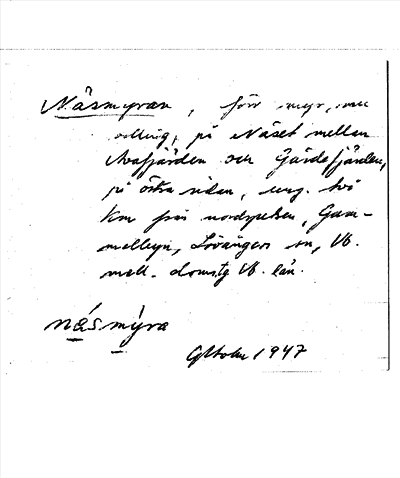 Näsmyran, förr myr, nu
odling, på Näset mellan
Avafjärden och Gärdefjärden,
på östra sidan, ung. två
km från nordspetsen, Gam-
melbyn, Lövångers sn, Vb.
mell. doms.tg Vb. län.
näsmýra
1947